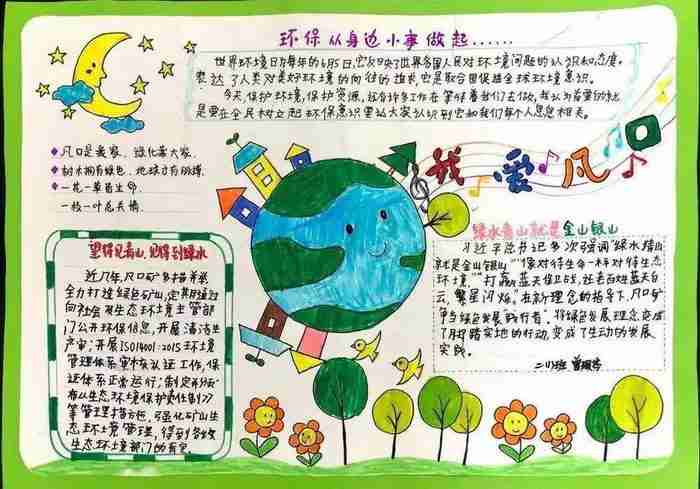 环保从身边小事做起……
世界环境日为每年的6月5日,它反映了世界各国人民对环境问题的认识和态度。
表达了人类对美好环境的向往和追求,它是联合国促进全球环境意识。
今天,保护环境,保护资源,还有许多工作在等待着我们去做,我认为首要的就
是要在全民树立起环保意识要让大家认识到它和我们每个人息息相关。
我爱凡口
凡口是我家,绿化靠大家.
树木拥有绿色,地球才有脉搏.
一花一草皆生命
一枝一叶总关情.
望得见青山,见得到绿水
近几年,凡口矿多措并举
全力打造绿色矿山,定期通过
向社会及生态环境主管部
门公开环保信息,开展清洁生
产审;开展ISO14001:2015环境
管理体系审核认证工作,保
证体系正常运行;制定并分
布《生态环境保护责任制》
等管理指方,强化矿山生
态环境管理,得到各级
生态环境部门的肯定.
绿水青山就是金山银山
习近平总书记多次强调“绿水青山
就是金山银山”“像对待生命一样对待生态
环境”“打赢蓝天保卫战,还老百姓蓝天白
云、繁星闪烁。”在新理念的指导下,凡口矿
争当绿色发展“践行者”,将绿色发展理念变成
了脚踏实地的行动,变成了生动的发展
实践.
二(1)班